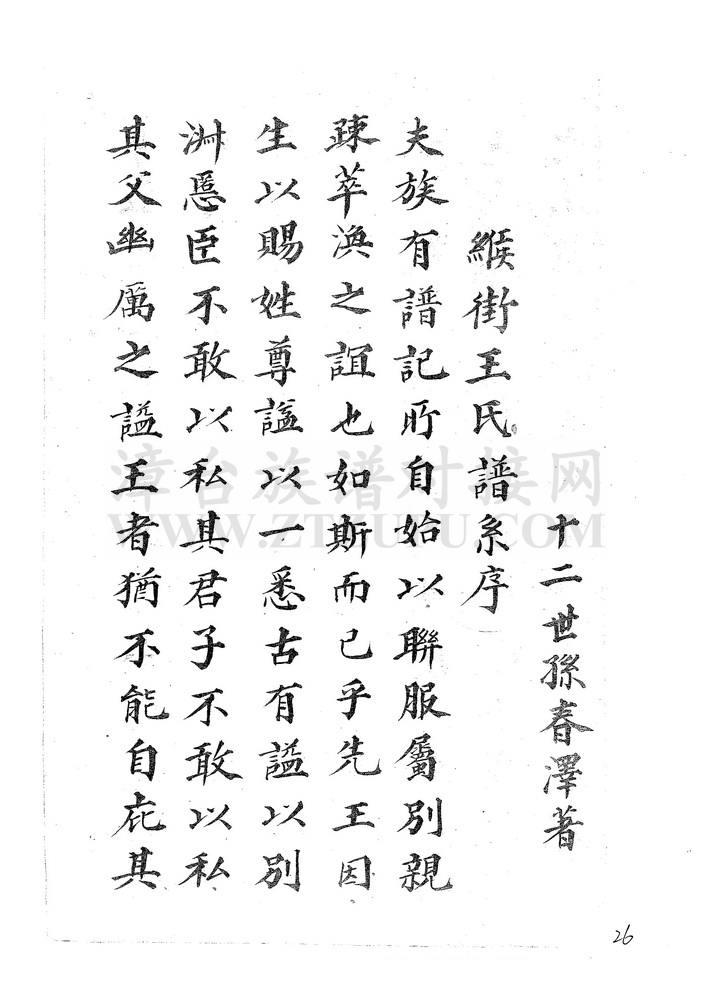 十二世孫春澤著
緱街王氏譜系序
夫族有譜記所自始以聯服屬別親
疎萃渙之誼也如斯而已乎先王因
生以賜姓尊諡以一悉古有諡以別
淋慝臣不敢以私其君子不敢以私
其父幽厲之諡王者猶不能自庇其
漳台族谱对接网
WWW.ZTZUPU.COM
26